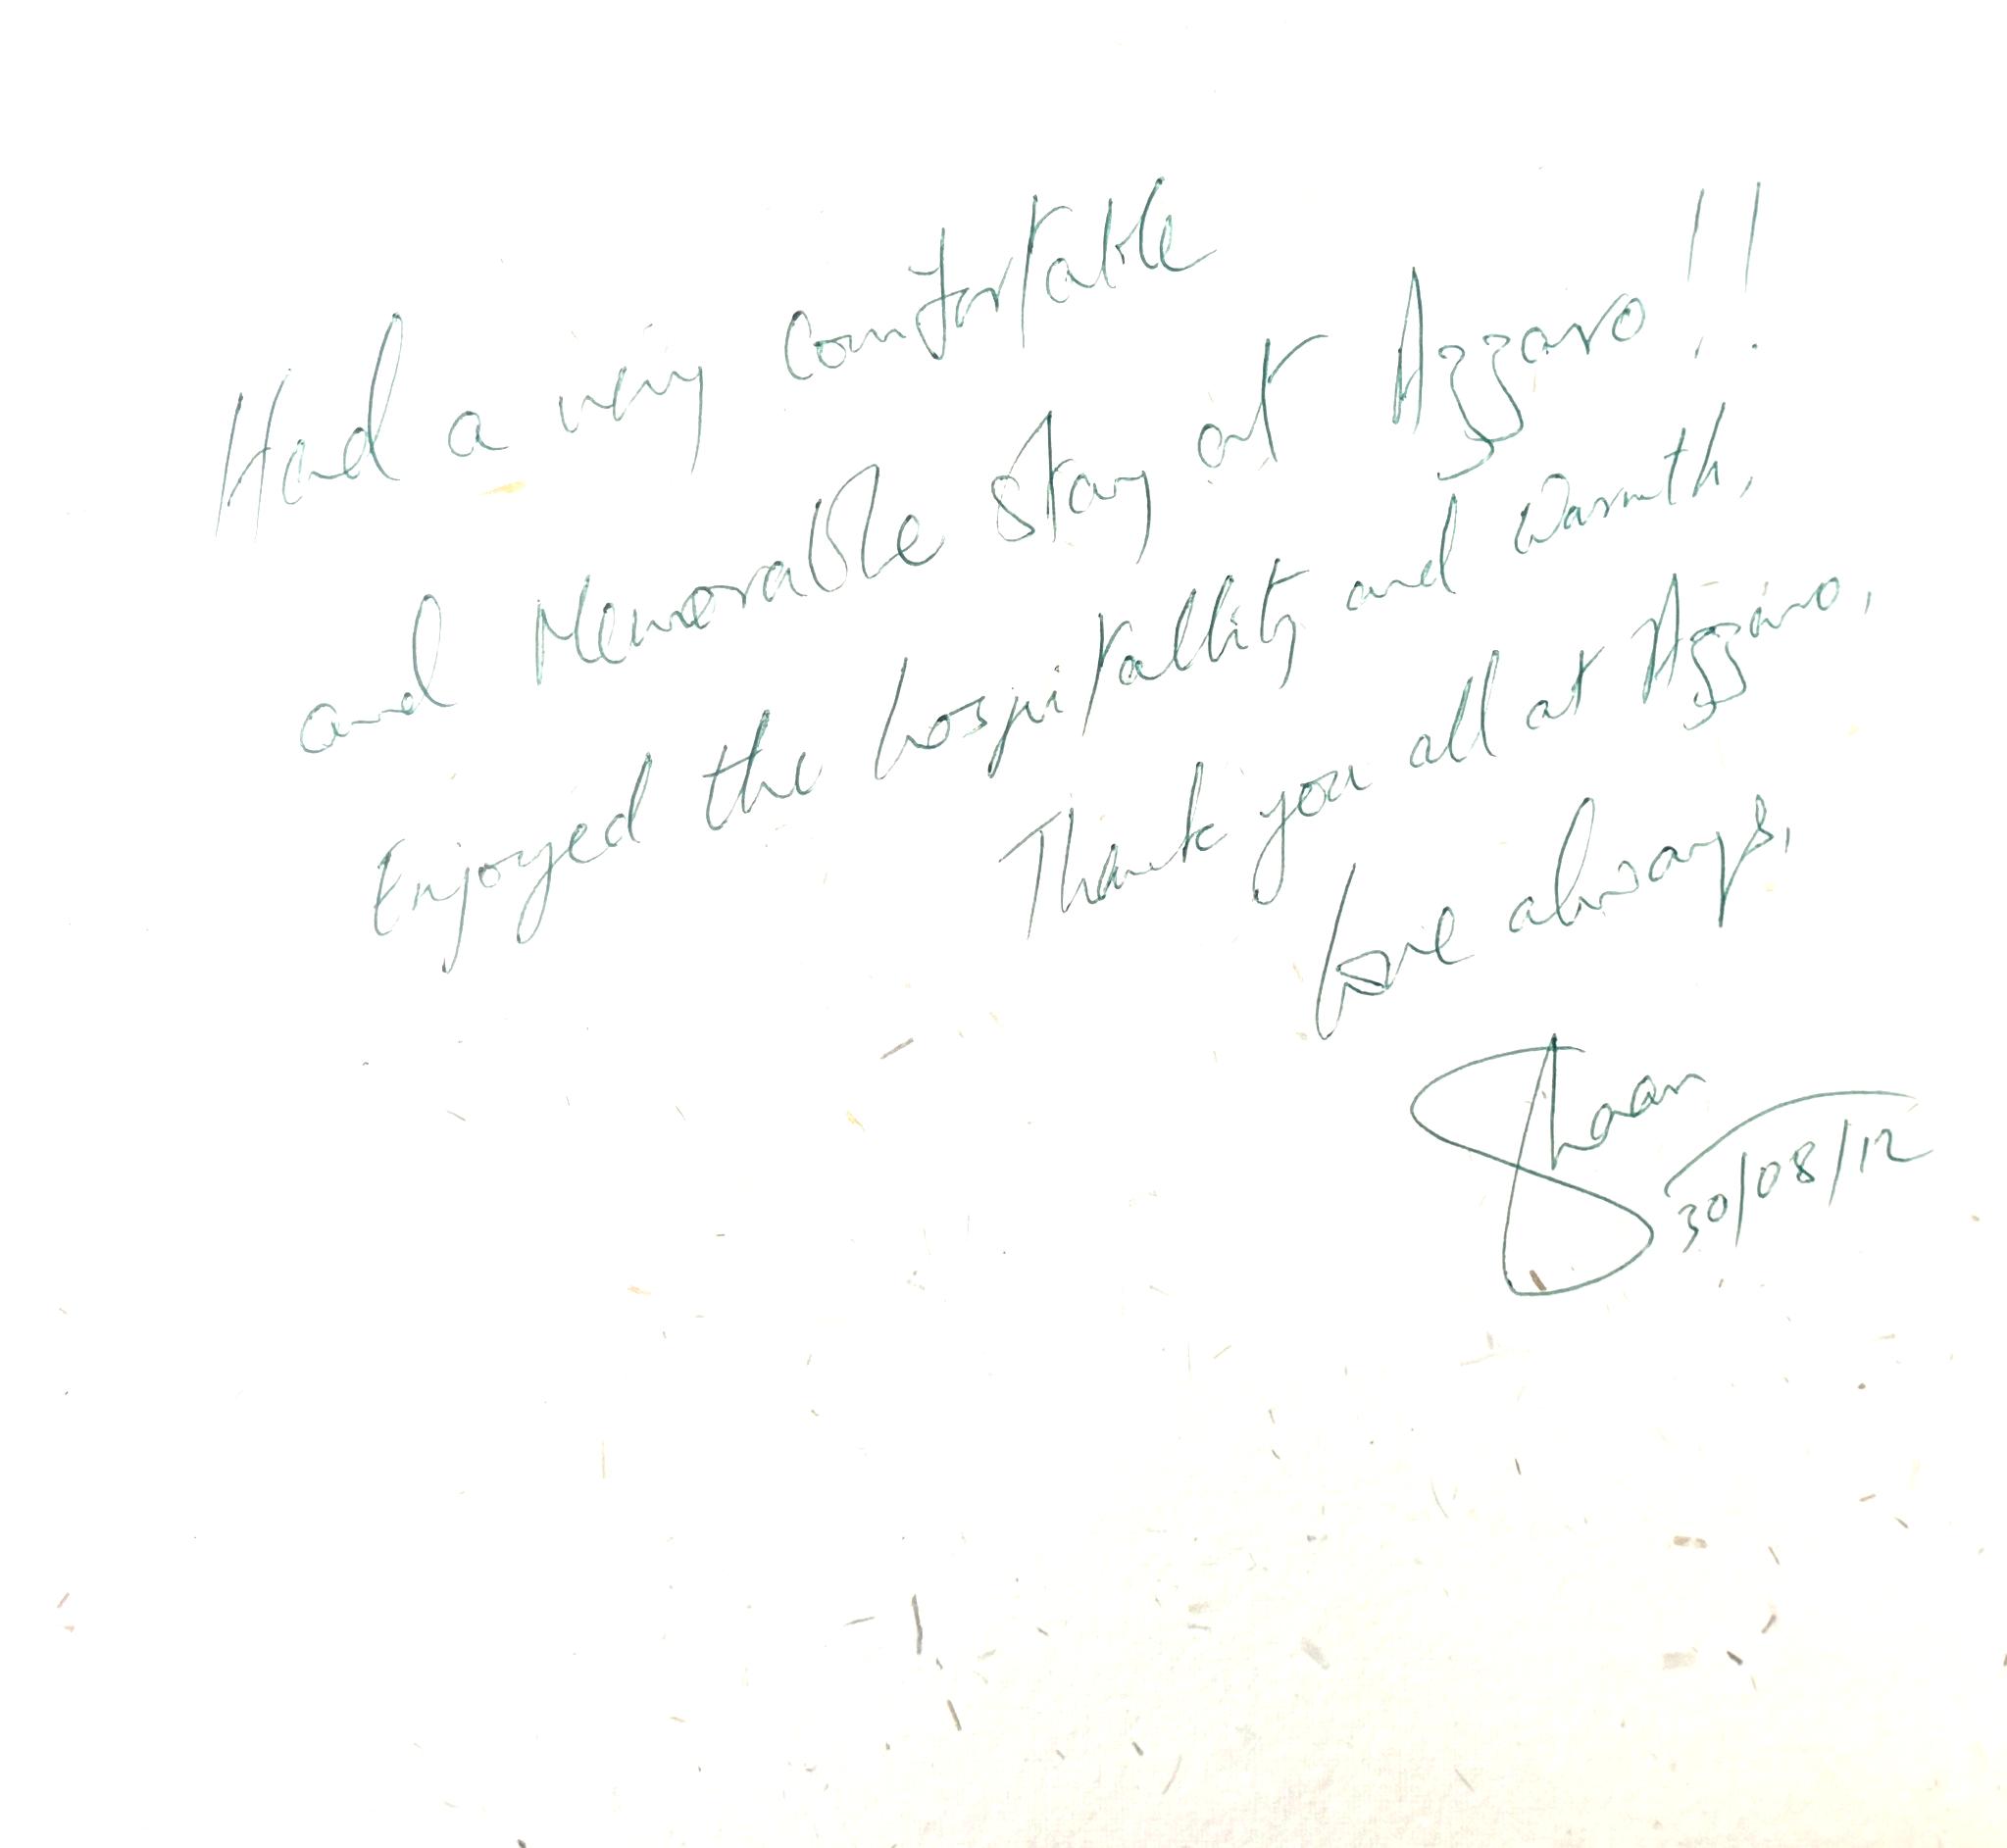 Had a very comfortable
and Memorable stay at Azzaro!!
Enjoyed the hospitallity and warmth,
Thank you all at Azzaro,
Love always,
Shaan
30/08/12